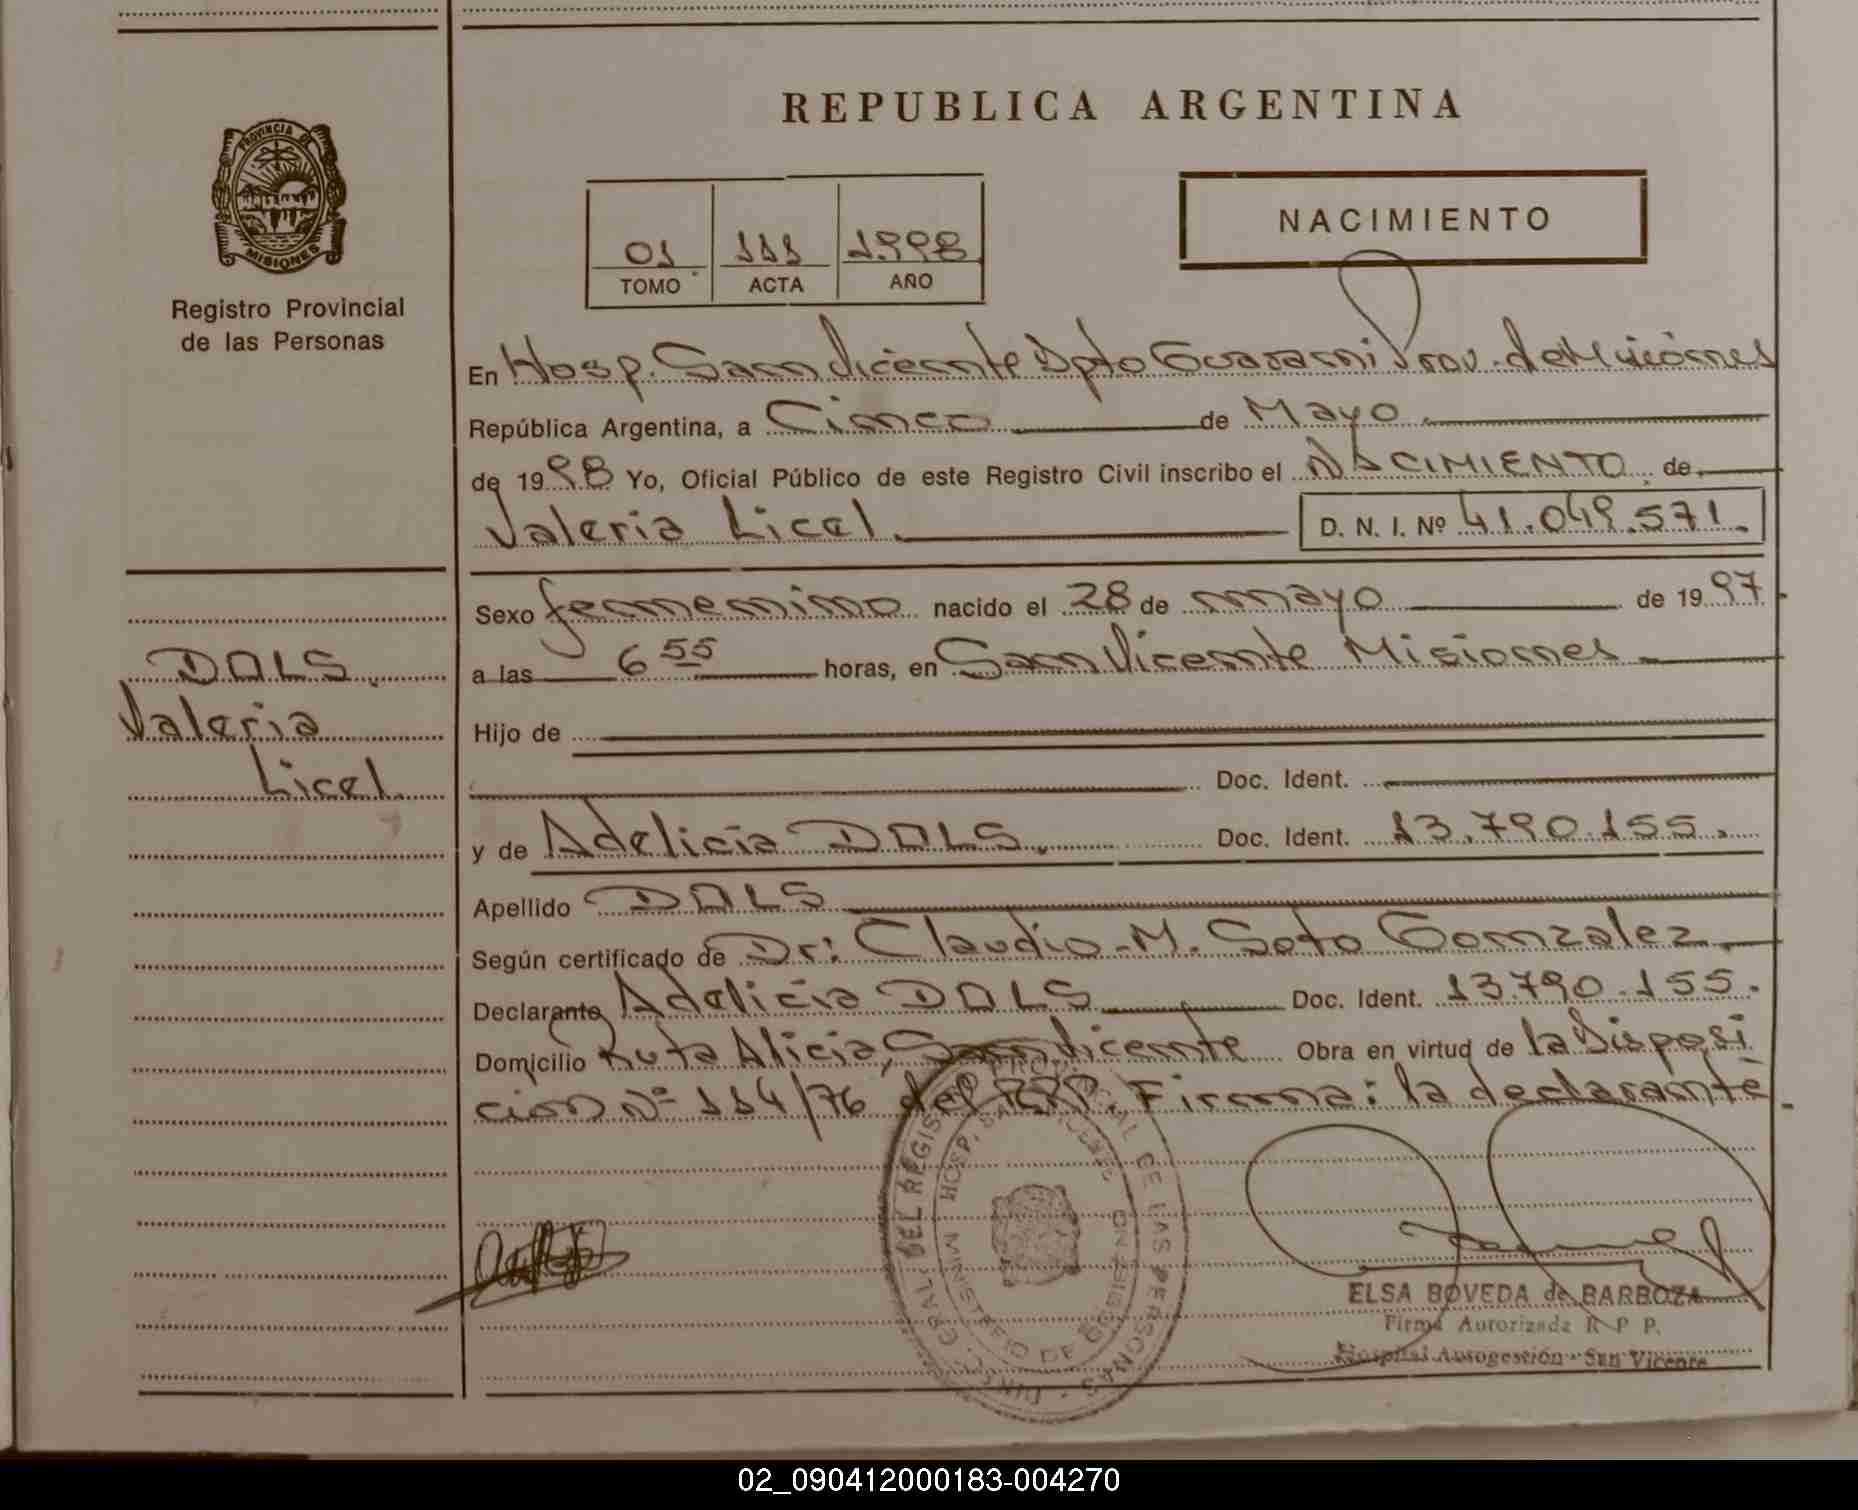 REPUBLICA ARGENTINA
PROVINCIA DE
MISIONES
Registro Provincial
de las Personas
01 111 1998
TOMO ACTA AÑO
NACIMIENTO
En Hosp. San Vicente Dpto Guarani Prov. de Misiones
República Argentina, a Cinco de Mayo
de 1998 Yo, Oficial Público de este Registro Civil inscribo el NACIMIENTO de
Valeria Licel D. N. I. Nº 41.049.571.
Sexo femenino nacido el 28 de mayo de 1997
a las 6 55 horas, en San Vicente Misiones
Hijo de
Doc. Ident.
y de Adelicia DALS. Doc. Ident. 13.790.155.
Apellido DALS
Según certificado de Dr: Claudio M. Soto Gonzalez
Declarante Adelicia DALS Doc. Ident. 13.790.155.
Domicilio Ruta Alicia, San Vicente Obra en virtud de la Disposi
ción Nº 114/76 del RPP. Firma: la declarante.
DALS.
Valeria
Licel.
DEL REGIS PROVINCIAL DE LAS PERSONAS
HOSP. SAN VICENTE
MINISTERIO DE GOBIERNO
ELSA BOVEDA de BARBOZA
Firma Autorizada R P P.
Hospital Autogestión - San Vicente
02_090412000183-004270